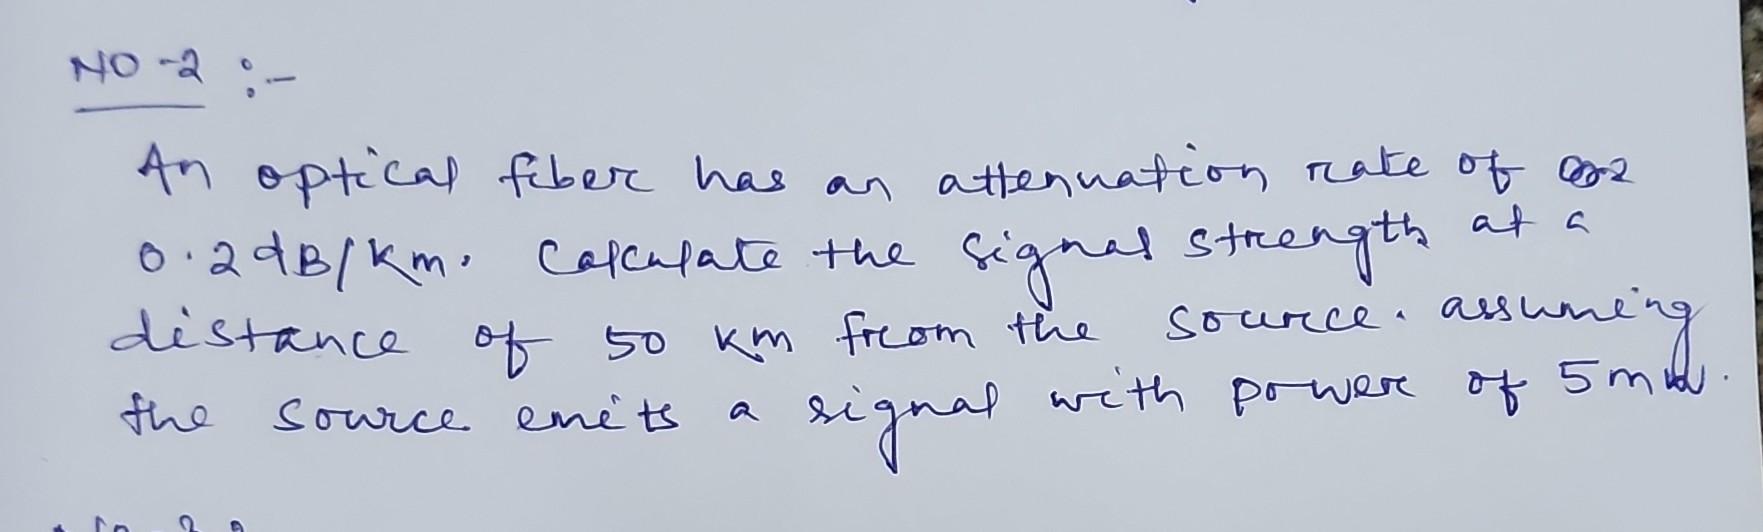 NO-2 :-
An optical fiber has an attenuation rate of
0.2dB/km. Calculate the signal strength at a
distance of 50 km from the source. assuming
the source emits a signal with power of 5mW.